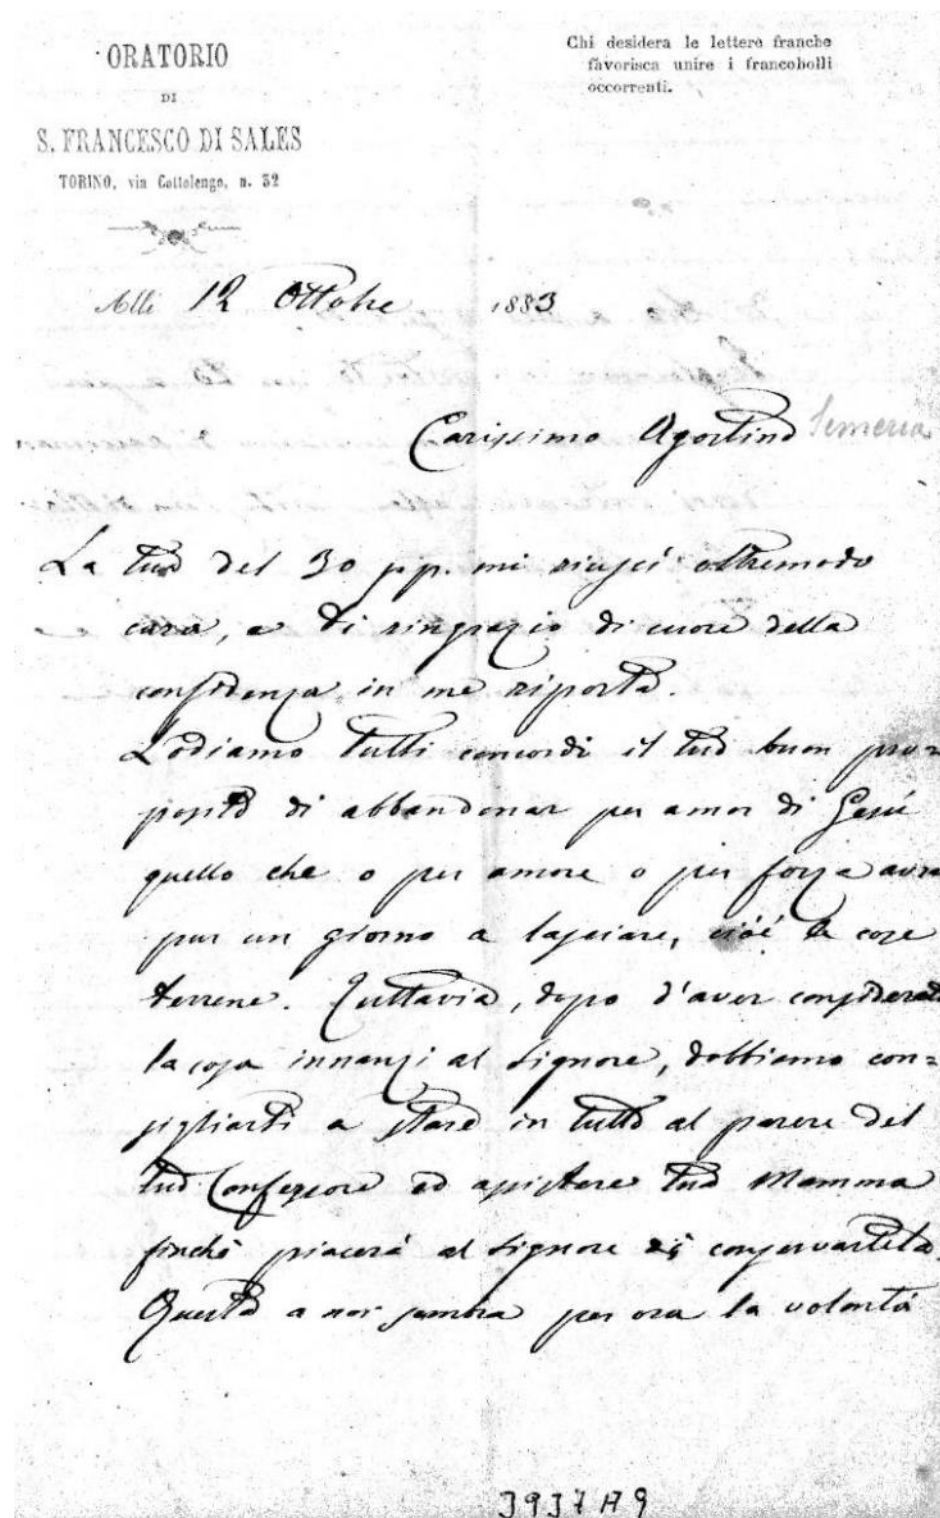 ORATORIO
DI
S. FRANCESCO DI SALES
TORINO, via Cottolengo, n. 32
Chi desidera le lettere franche
favorisca unire i francobolli
occorrenti.
Alli 12 Ottobre 1883
Carissimo Agostino Semeria
La tua del 30 pp. mi riuscì oltremodo
cara, e ti ringrazio di cuore della
confidenza in me riposta.
Lodiamo tutti concordi il tuo buon pro=
posito di abbandonar per amor di Gesù
quello che o per amore o per forza avrai
pur un giorno a lasciare, cioè le cose
terrene. Tuttavia, dopo d'aver considerato
la cosa innanzi al Signore, dobbiamo con=
sigliarti a stare in tutto al parere del
tuo Confessore ed assistere tua Mamma
finchè piacerà al Signore di conservartela.
Questa a noi sembra per ora la volontà
3937A9